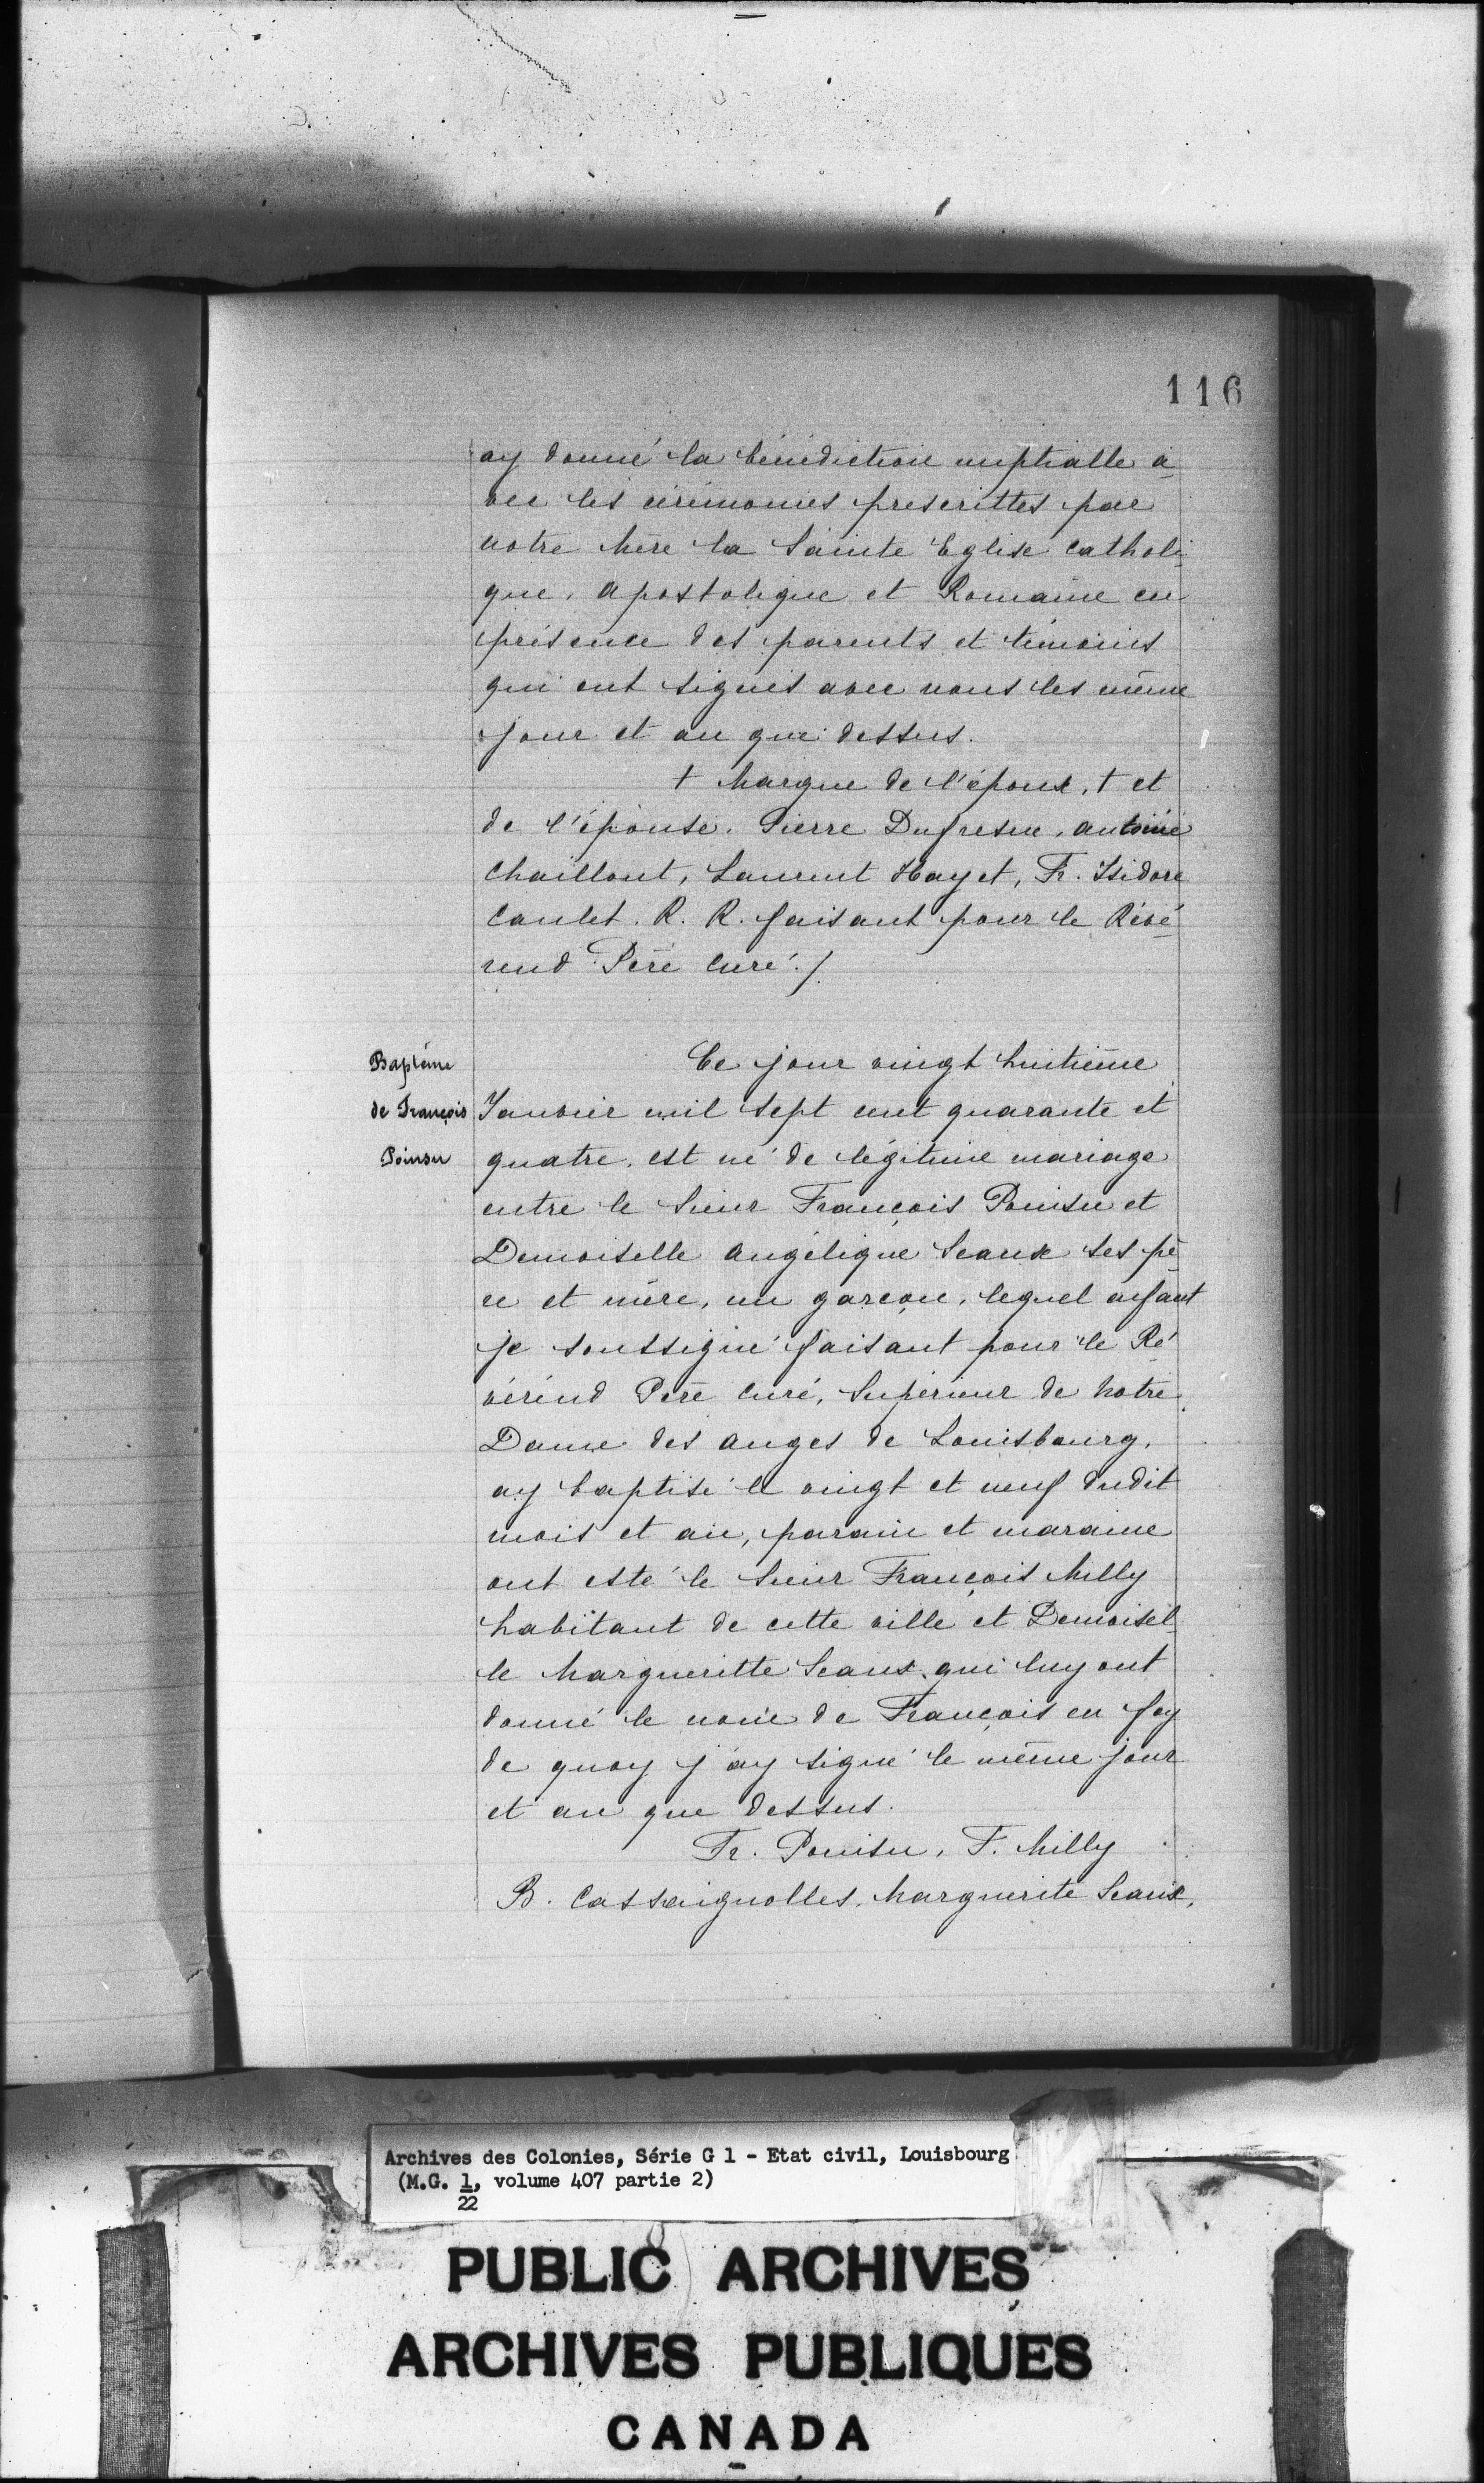 116
ay donné la bénédiction nuptialle a-
vec les cérémonies prescrittes par
notre Mère la Sainte Eglise catholi-
que, apostolique et Romaine en
présence des parents et témoins
qui ont signés avec nous les même
jour et an que dessus.
† Marque de l'époux, † et
de l'épouse. Pierre Dufresne, antoine
Chaillout, Laurent Hayet, Fr. Isidore
Caulet. R. R. faisant pour le Révé-
rend Père Curé./.
Baptême
de François
Poinsu
Ce jour vingt huitième
Janvier mil sept cent quarante et
quatre, est né de légitime mariage
entre le Sieur François Pouisu et
Demoiselle angélique Seaux ses pè-
re et mère, un garçon, lequel enfant
je soussigné faisant pour le Ré-
vérend Père Curé, Supérieur de Notre
Dame des anges de Louisbourg,
ay baptisé le vingt et neuf dudit
mois et an, parain et maraine
ont esté le Sieur François Milly
habitant de cette ville et Demoisel-
le Margueritte Seaux qui luy ont
donné le nom de François en foy
de quoy j'ay signé le même jour
et an que dessus.
Fr. Pouisu, F. Milly
B. Cassaignolles, Marguerite Seaux,
Archives des Colonies, Série G 1 - Etat civil, Louisbourg
(M.G. 1, volume 407 partie 2)
22
PUBLIC ARCHIVES
ARCHIVES PUBLIQUES
CANADA